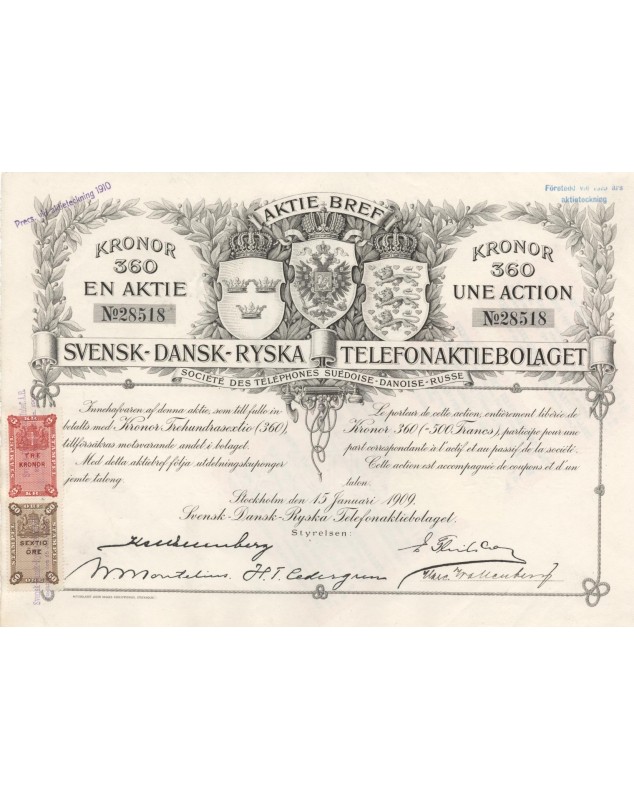 aktieteckning 1910
aktieteckning
AKTIE BREF
KRONOR
360
EN AKTIE
No 28518
KRONOR
360
UNE ACTION
No 28518
SVENSK-DANSK-RYSKA TELEFONAKTIEBOLAGET
SOCIÉTÉ DES TÉLÉPHONES SUÉDOISE-DANOISE-RUSSE
Innehafvaren af denna aktie, som till fullo in-
betalts med Kronor Trehundrasextio (360),
tillförsäkras motsvarande andel i bolaget.
Med detta aktiebref följa utdelningskuponger
jemte talong.
Le porteur de cette action, entièrement libérée de
Kronor 360 (=500 Francs), participe pour une
part correspondante à l'actif et au passif de la société.
Cette action est accompagnée de coupons et d'un
talon.
Stockholm den 15 Januari 1909.
Svensk-Dansk-Ryska Telefonaktiebolaget.
Styrelsen:
H. T. Cedergren
Marc. Wallenberg
TRE
KRONOR
SEXTIO
ÖRE